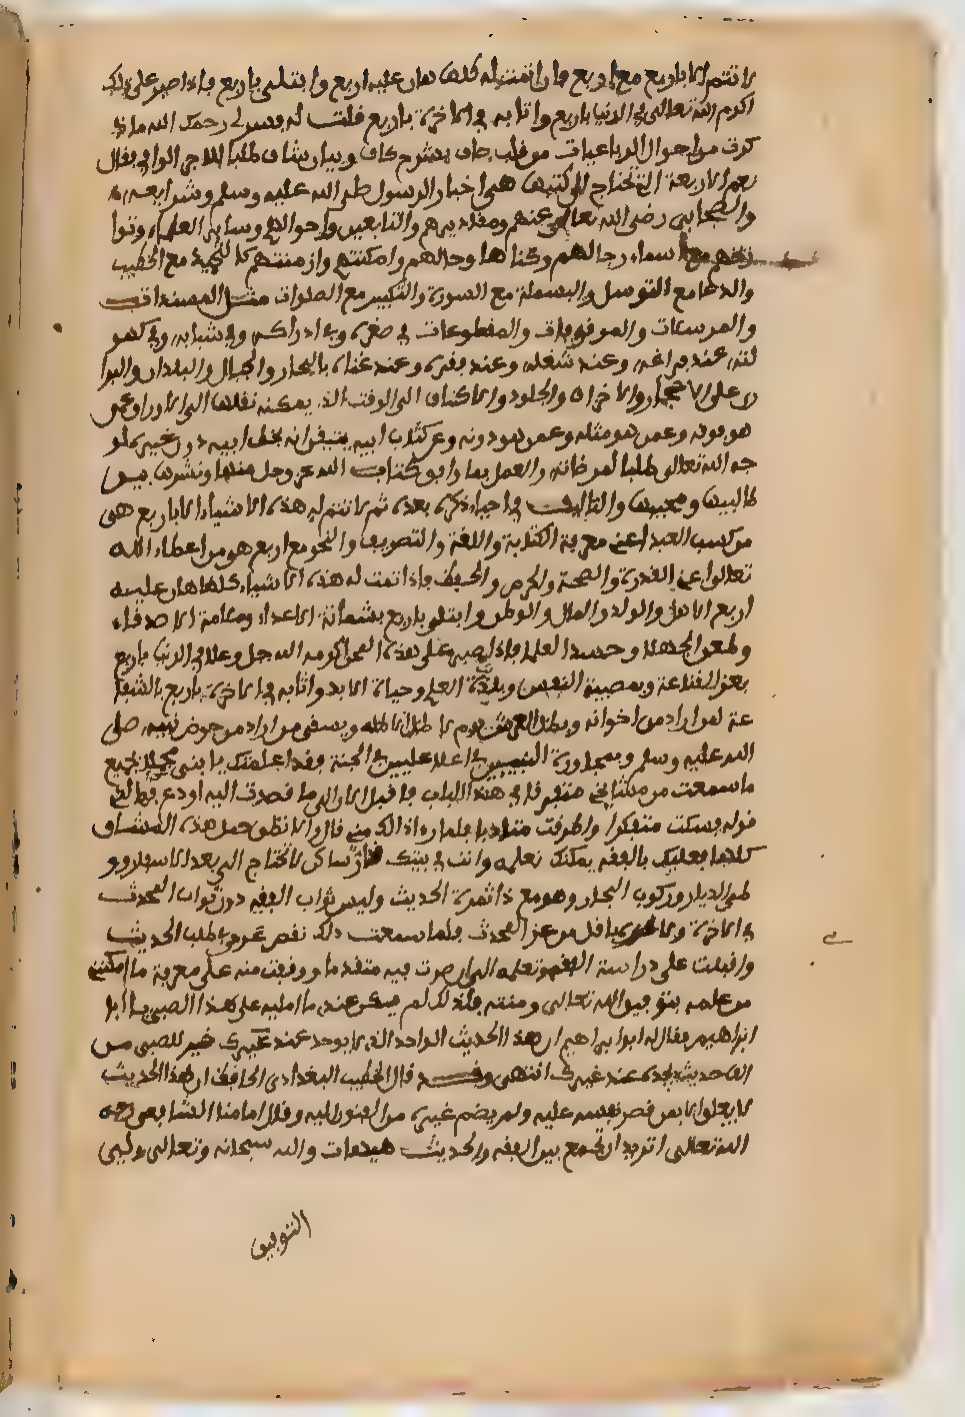 لا تتم الا باربع مع اربع فاذا تمت له كلها هان عليه اربع وابتلي باربع فاذا صبر على ذلك
اكرم الله تعالى في الدنيا باربع واثابه في الاخرة باربع قلت له فسر لي رحمك الله ما ذ
كرت من احوال الرباعيات من قلب صاف بشرح كاف وبيان شاف طلبا للاجر الوافي فقال
نعم الاربعة التي تحتاج الى كتبها هي اخبار الرسول صلى الله عليه وسلم وشرايعه
والصحابي رضي الله تعالى عنهم ومقاديرهم والتابعين واحوالهم وساير العلماء وتوا
ريخهم مع اسماء رجالهم وكناها وحالهم وامكنتهم وازمنتهم كالتحميد مع الخطيب
والدعا مع التوسل والبسملة مع السورة والتكبير مع الصلوات مثل المسندات
والمرسلات والموقوفات والمقطوعات في صغره وفي ادراكه وفي شبابه وفي كهو
لته عند فراغه وعند شغله وعند فقره وعند غناه بالبحار والجبال والبلدان والبرا
رى على الاحجار والاخزاف والجلود والاكتاف الى الوقت الذي يمكنه نقلها الى الاوراق عمن
هو فوقه وعمن هو مثله وعمن هو دونه وعن كتاب ابيه يتيقن انه بخط ابيه دون غيره لو
جه الله تعالى طلبا لمرضاته والعمل بما وافق كتاب الله عز وجل منها ونشرها بين
طالبيها ومحبيها والتاليف في احياء ذكره بعده ثم لا تتم له هذه الاشياء الا باربع هي
من كسب العبد اعني معرفة الكتابة واللغة والتصريف والنحو مع اربع هو من اعطاء الله
تعالى اعني القدرة والصحة والحرص والحفظ فاذا تمت له هذه الاشياء كلها هان عليه
اربع الاهل والولد والمال والوطن وابتلي باربع بشماتة الاعداء وملامة الاصدقاء
وطعن الجهلا وحسد العلما فاذا صبر على هذه المحن اكرمه الله جل وعلا في الدنيا باربع
بعز القناعة وبهيبة النفس وبلذة العلم وحياة الابد واثابه في الاخرة باربع بالشفا
عة لمن اراد من اخوانه وبظل العرش يوم لا ظل الا ظله ويسقي من اراد من حوض نبيه صلى
الله عليه وسلم وبمجاورة النبيين في اعلا عليين في الجنة فقد اعلمتك يا بني مجملا بجميع
ما سمعت من مشايخي متفرقا في هذا الباب فاقبل الان الى ما قصدت اليه او دع فهالني
قوله فسكت متفكرا واطرقت متادبا فلما راى ذلك مني قال وان لا تطق حمل هذه المشاق
كلها فعليك بالفقه يمكنك تعلمه وانت في بيتك قار ساكن لا تحتاج الى بعد الاسفار و و
طي الديار وركوب البحار وهو مع ذا ثمرة الحديث وليس ثواب الفقيه دون ثواب المحدث
في الاخرة ولا عزه باقل من عز المحدث فلما سمعت ذلك نقص عزمي في طلب الحديث
واقبلت على دراسة الفقه وتعلمه الى ان صرت فيه متقدما ووقفت منه على معرفة ما امكنني
من علمه بتوفيق الله تعالى ومنته فلذلك لم يكن عندي ما امليه على هذا الصبي يا ابا
ابراهيم فقال له ابو ابراهيم ان هذا الحديث الواحد الذي لا يوجد عند غيرك خير للصبي من
الف حديث يجده عند غيرك انتهى وقد قال الخطيب البغدادي الحافظ ان هذا الحديث
لا يعلو الا بمن قصر نفسه عليه ولم يضم غيره من الفنون اليه وقال امامنا الشافعي رحمه
الله تعالى اتريد ان تجمع بين الفقه والحديث هيهات والله سبحانه وتعالى ولي
التوفيق